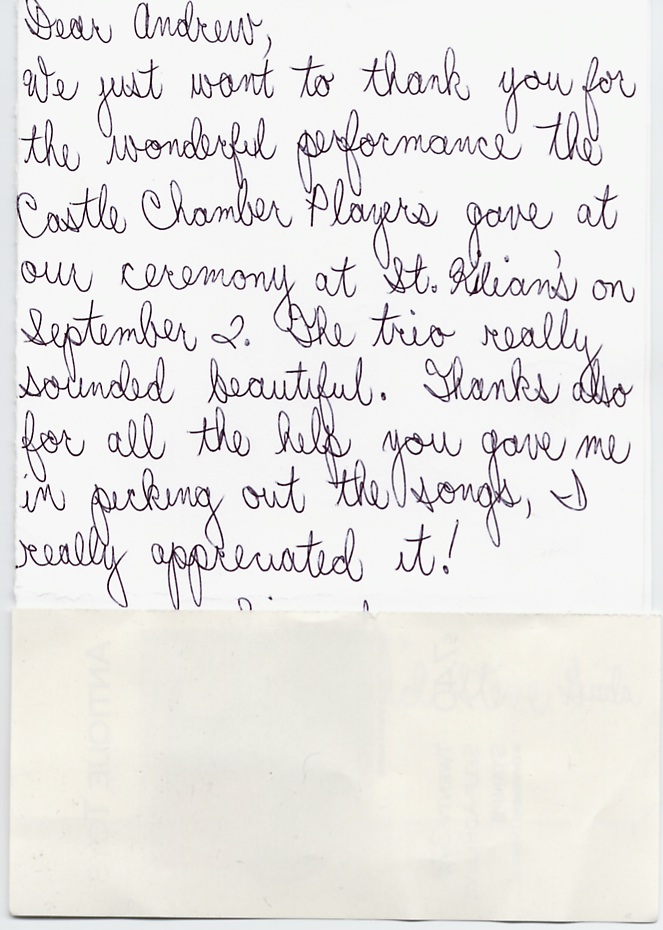 Dear Andrew,
We just want to thank you for
the wonderful performance the
Castle Chamber Players gave at
our ceremony at St. Kilian's on
September 2. The trio really
sounded beautiful. Thanks also
for all the help you gave me
in picking out the songs, I
really appreciated it!
ANTIQUE TO